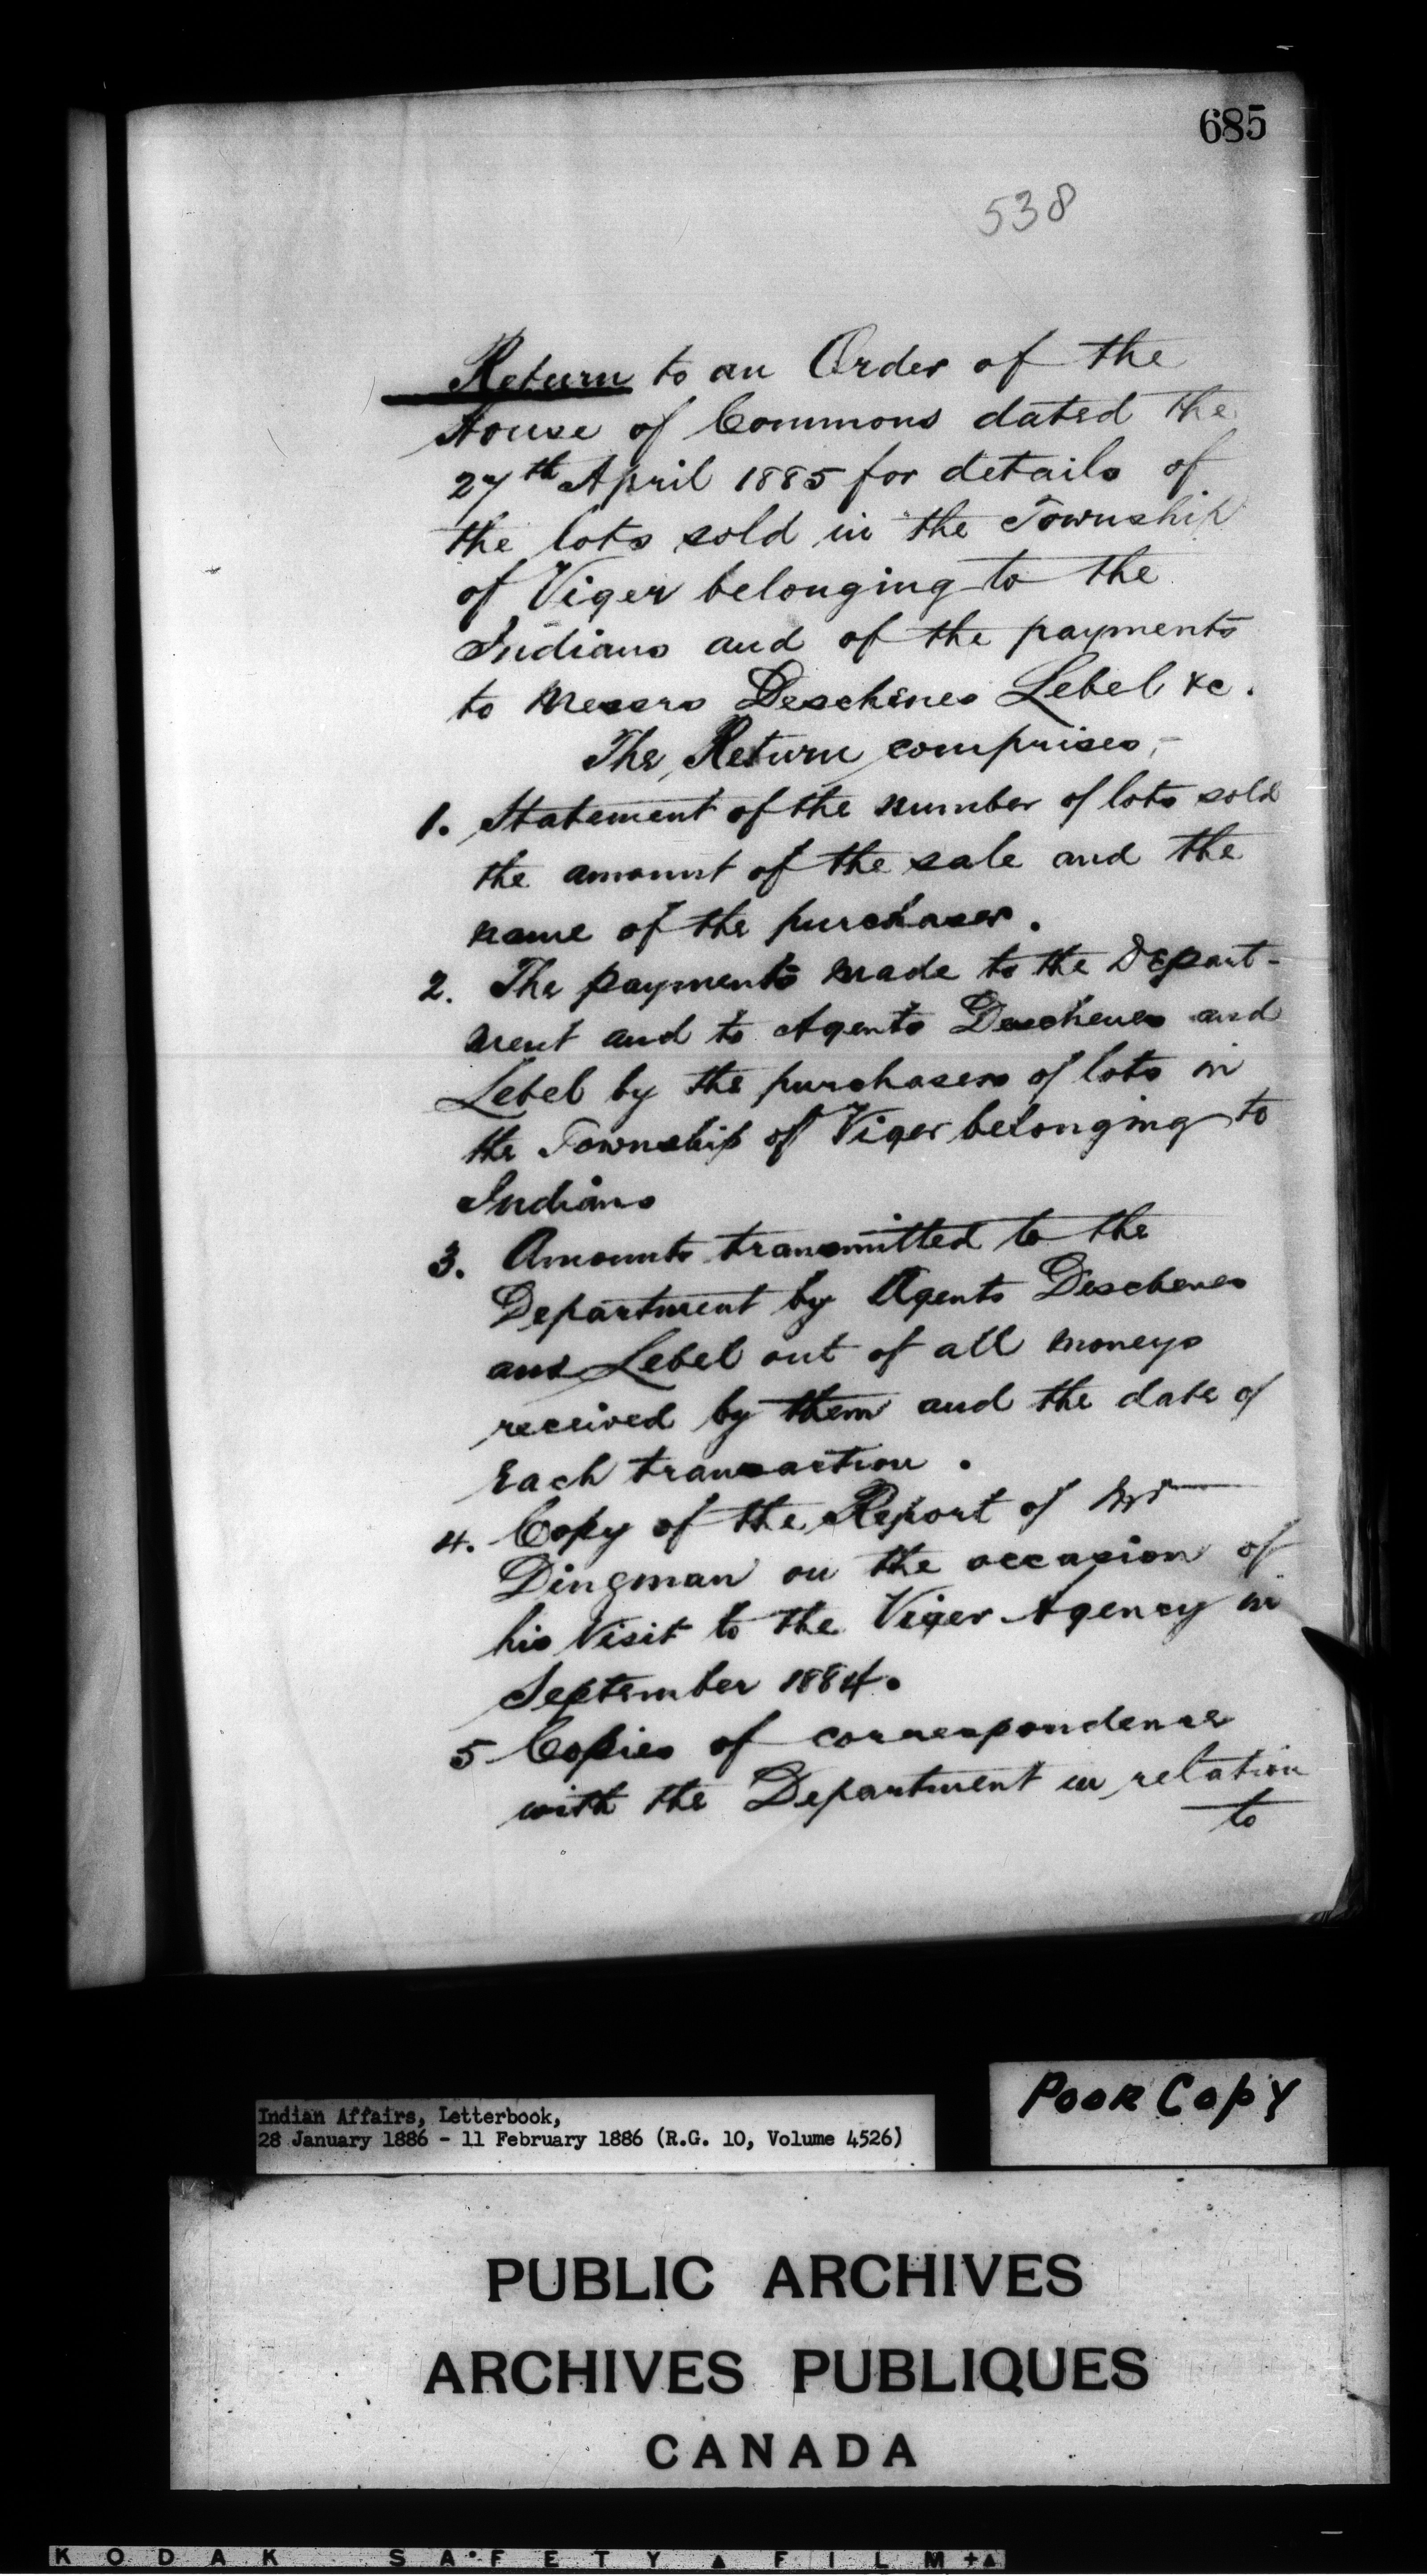 685
538
Return to an Order of the
House of Commons dated the
27th April 1885 for details of
the lots sold in the Township
of Viger belonging to the
Indians and of the payments
to Messrs Deschenes Lebel &c.
The Return comprises,-
1. Statement of the number of lots sold
the amount of the sale and the
name of the purchaser.
2. The payments made to the Depart-
ment and to Agents Deschenes and
Lebel by the purchasers of lots in
the Township of Viger belonging to
Indians
3. Amounts transmitted to the
Department by Agents Deschenes
and Lebel out of all moneys
received by them and the date of
Each transaction.
4. Copy of the Report of Mr
Dingman on the occasion of
his Visit to the Viger Agency in
September 1884.
5 Copies of correspondence
with the Department in relation
to
Poor Copy
Indian Affairs, Letterbook,
28 January 1886 - 11 February 1886 (R.G. 10, Volume 4526)
PUBLIC ARCHIVES
ARCHIVES PUBLIQUES
CANADA
KODAK SAFETY FILM